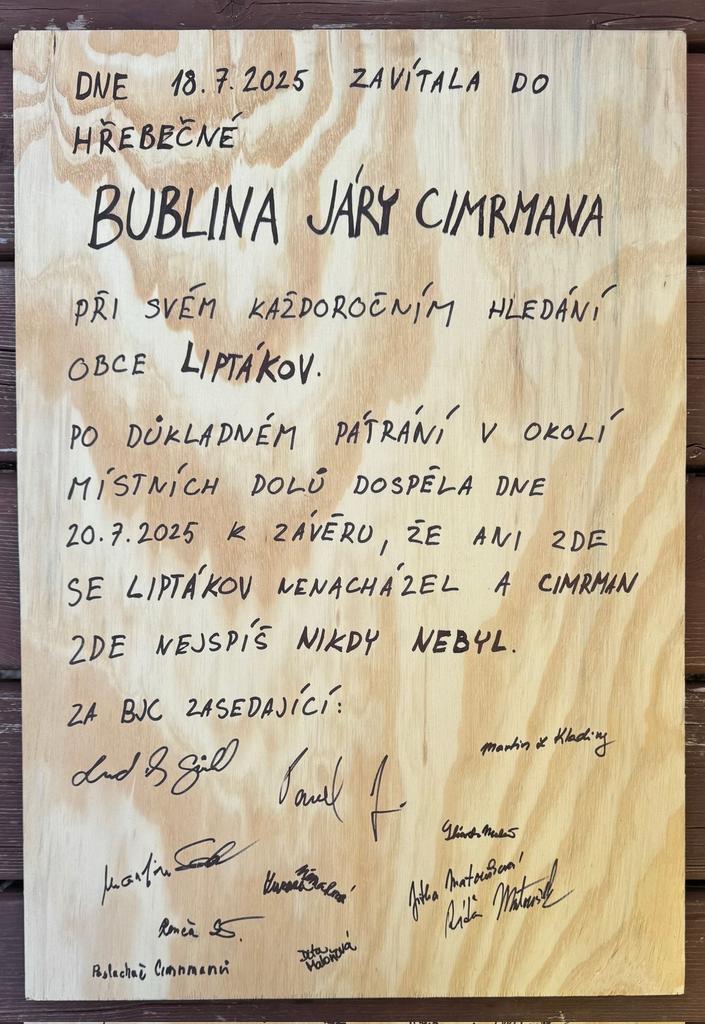 DNE 18.7.2025 ZAVÍTALA DO
HŘEBEČNÉ
BUBLINA JÁRY CIMRMANA
PŘI SVÉM KAŽDOROČNÍM HLEDÁNÍ
OBCE LIPTÁKOV.
PO DŮKLADNÉM PÁTRÁNÍ V OKOLÍ
MÍSTNÍCH DOLŮ DOSPĚLA DNE
20.7.2025 K ZÁVĚRU, ŽE ANI ZDE
SE LIPTÁKOV NENACHÁZEL A CIMRMAN
ZDE NEJSPÍŠ NIKDY NEBYL.
ZA BJC ZASEDAJÍCÍ:
Martin z Kladiny
Pavel J.
Martin
Jitka Matoušová
Posluchač Cimrmanů